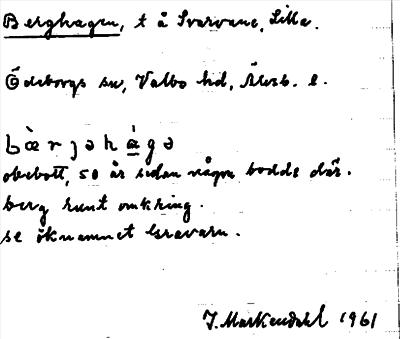 Berghagen, t å Svarvane, Lilla.
Ödeborgs sn, Valbo hd, Älvsb. l.
bæ̀rjəhàgə
obebott, 50 år sedan någon bodde där.
berg runt omkring.
se öknamnet Gravarn.
J. Markendahl 1961